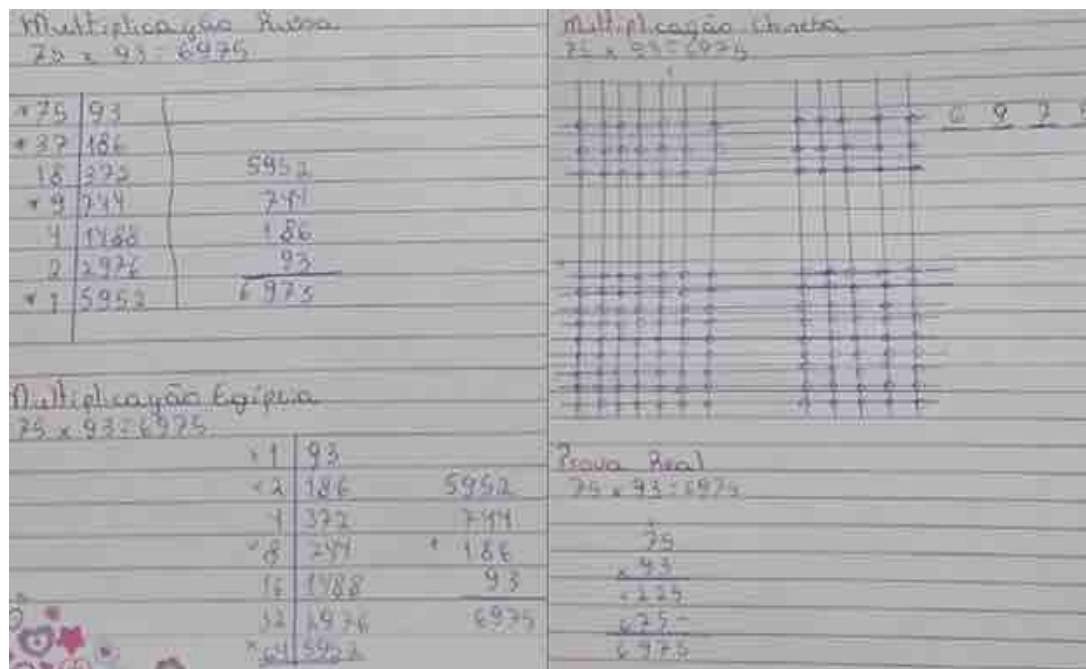 Multiplicação Russa
75 x 93 = 6975
* 75 | 93
* 37 | 186
18 | 372
* 9 | 744
4 | 1488
2 | 2976
* 1 | 5952
5952
744
186
93
6975
Multiplicação Egípcia
75 x 93 = 6975
* 1 | 93
* 2 | 186
4 | 372
* 8 | 744
16 | 1488
32 | 2976
* 64 | 5952
5952
744
+ 186
93
6975
Multiplicação Chinesa
75 x 93 = 6975
6 9 7 5
Prova Real
75 x 93 = 6975
75
x 93
225
675-
6975